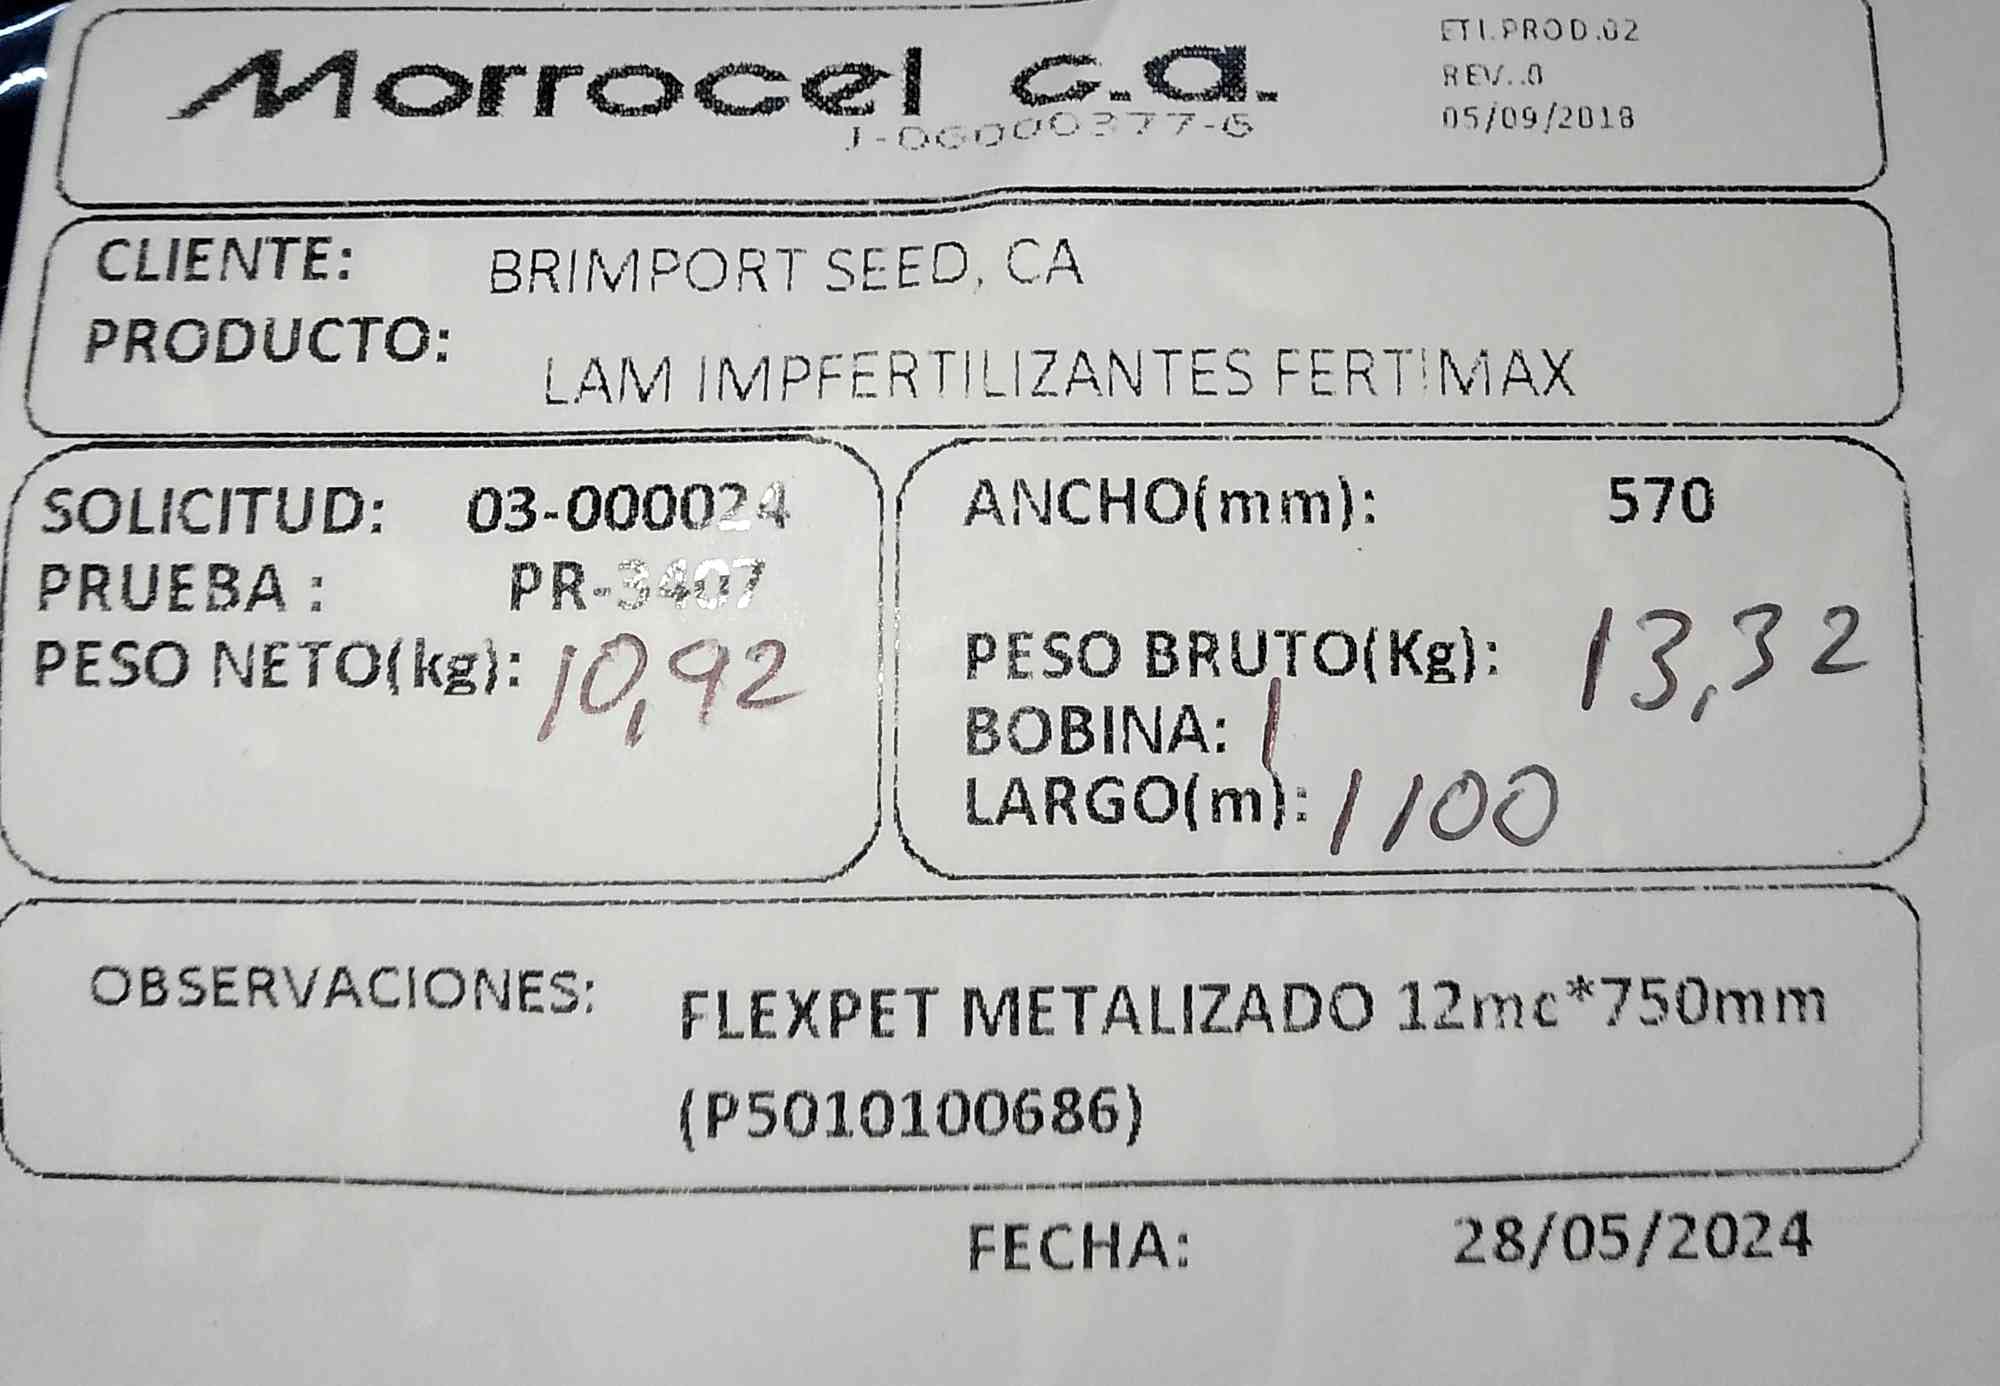 Morrocel c.a.
J-06000377-6
ETI.PROD.02
REV..0
05/09/2018
CLIENTE: BRIMPORT SEED, CA
PRODUCTO: LAM IMPFERTILIZANTES FERTIMAX
SOLICITUD: 03-000024
PRUEBA : PR-3407
PESO NETO(kg): 10,92
ANCHO(mm): 570
PESO BRUTO(Kg): 13,32
BOBINA: 1
LARGO(m): 1100
OBSERVACIONES: FLEXPET METALIZADO 12mc*750mm
(P5010100686)
FECHA: 28/05/2024